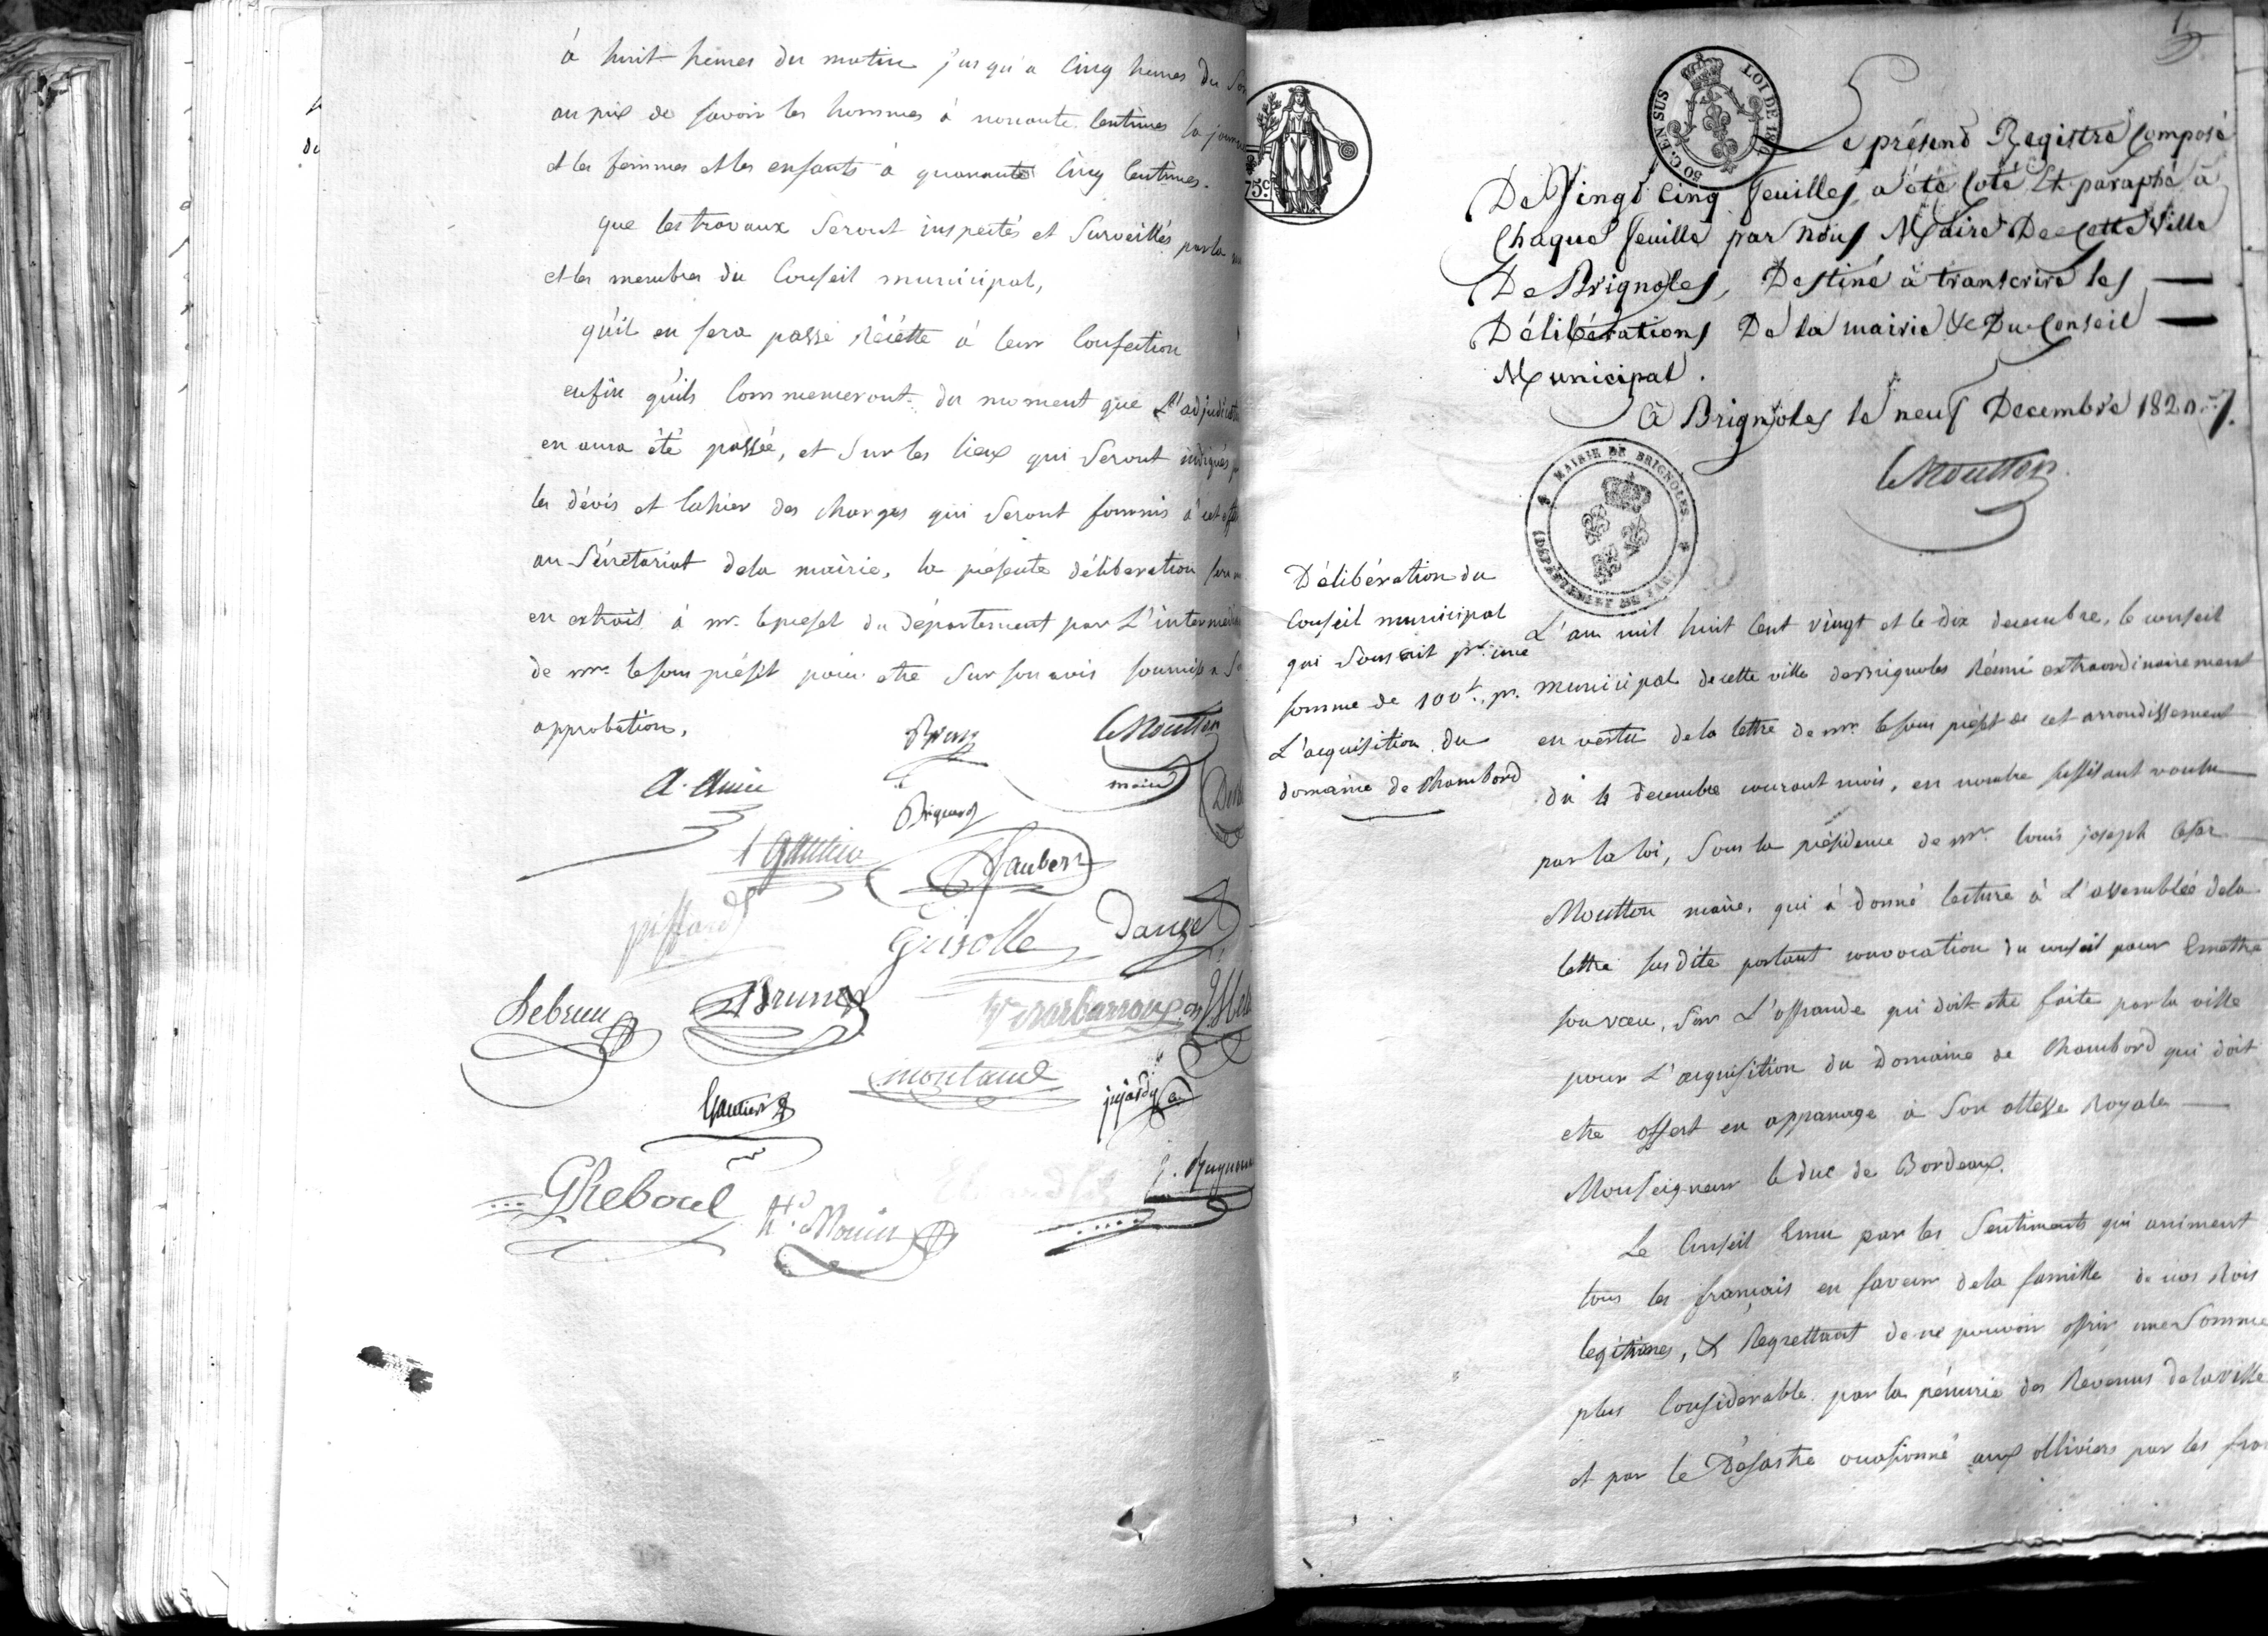 à huit heures du matin jusqu'a Cinq heures du
au prix de savoir les hommes à nonante Centimes la
et les femmes et les enfants à quarante Cinq Centimes.
que les travaux Seront inspectés et Surveillés par le
et les membres du Conseil municipal,
qu'il en sera passé Récètte à leur Confection
enfin qu'ils Commenceront du moment que L'
en aura été passée, et Sur les lieux qui Seront indiqués
les dévis et Cahier des charges qui Seront fournis à cet
au Sécrétariat dela mairie, la présente délibération
en extrait à mr. le préfet du département par L'
de mr. le Sous préfet pour etre Sur son avis soumis a
approbation.
Brun
le Moutton
maire
Briquard
Jaubert
piffard
Grisolle
Lebrun
LBrunet
Barbarroux
montaud
Gautier
GReboul
LOI DE
50 C. EN SUS
75 C.
Le présend Registre Composé
De Vingt Cinq feuilles, a été Coté Et paraphé à
Chaque feuille par Nous Maire De Cette Ville
De Brignoles, Destiné à transcrire les
Délibérations De la mairie & Du Conseil
Municipal.
à Brignoles le neuf Decembre 1820.
le Moutton
MAIRIE DE BRIGNOLES.
(DÉPARTEMENT DU VAR)
Délibération du
Conseil municipal
qui Souscrit pr. une
somme de 100 f. pr.
L'acquisition du
domaine de Chambord
L'an mil huit Cent vingt et le dix decembre, le conseil
municipal de cette ville de Brignoles Réuni extraordinairement
en vertu dela lettre de mr. le Sous préfet de cet arrondissement
du 4 decembre courant mois, en nombre suffisant voulu
par la loi, Sous la présidence de mr. louis joseph César
Moutton maire, qui à donné lecture à L'assemblée dela
lettre Susdite portant convocation du conseil pour Emettre
son vœu, Sur L'offrande qui doit etre faite par la ville
pour L'acquisition du Domaine de Chambord qui doit
etre offert en appanage à Son altesse Royale
Monseigneur le duc de Bordeaux.
Le Conseil Emu par les Sentiments qui animent
tous les français en faveur dela famille de nos Rois
legitimes, & Regrettant de ne pouvoir offrir une Somme
plus Considerable par la pénurie des Révenus de la ville
et par le Désastre occasionné aux olliviers par les